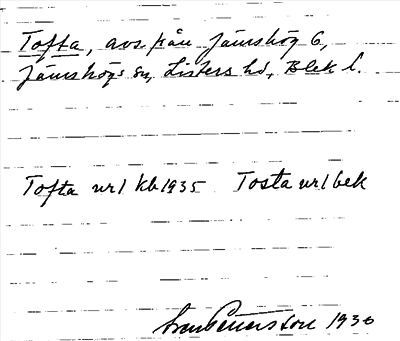 Tofta, avs. från Jämshög 6,
Jämshögs sn, Listers hd, Blek l.
Tofta nr1 kb 1935 Tosta nr1 bek
Sven Petersson 1930